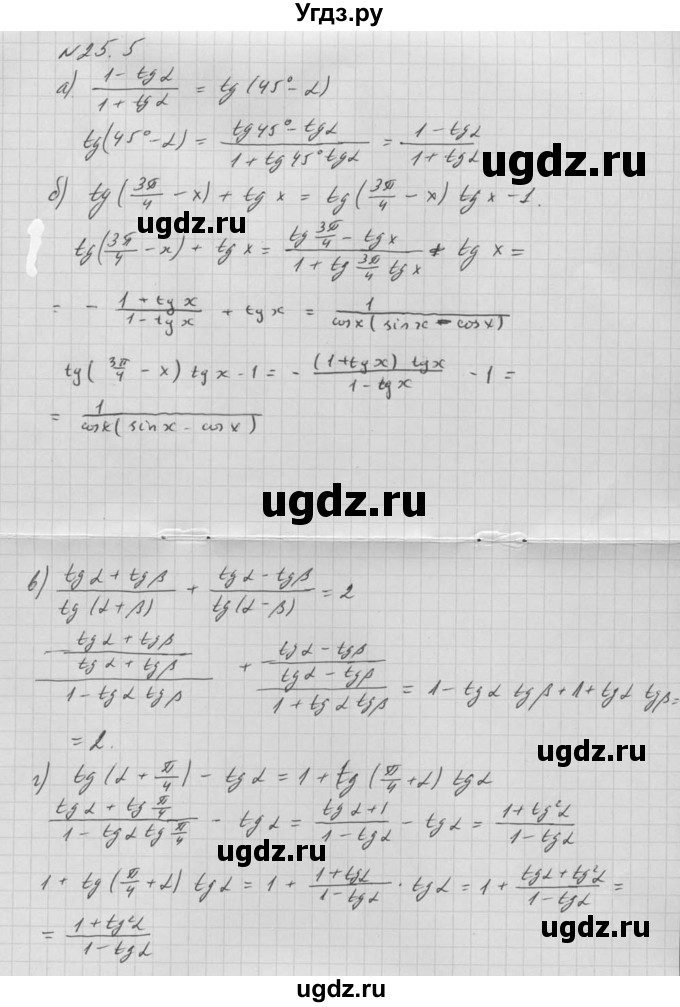 Угдз.ру
№25.5
а) (1 - tgα)/(1 + tgα) = tg(45° - α)
tg(45° - α) = (tg45° - tgα)/(1 + tg45° tgα) = (1 - tgα)/(1 + tgα)
ugdz.ru
б) tg(3π/4 - x) + tg x = tg(3π/4 - x) tg x - 1.
ugdz.ru
tg(3π/4 - x) + tg x = (tg 3π/4 - tg x)/(1 + tg 3π/4 tg x) + tg x =
ugdz.ru
= - (1 + tg x)/(1 - tg x) + tg x = 1/(cosx(sinx - cosx))
tg(3π/4 - x) tg x - 1 = - ((1 + tg x) tg x)/(1 - tg x) - 1 =
= 1/(cosx(sinx - cosx))
ugdz.ru
ugdz.ru
в) (tgα + tgβ)/(tg(α + β)) + (tgα - tgβ)/(tg(α - β)) = 2
(tgα + tgβ)/((tgα + tgβ)/(1 - tgα tgβ)) + (tgα - tgβ)/((tgα - tgβ)/(1 + tgα tgβ)) = 1 - tgα tgβ + 1 + tgα tgβ =
= 2.
ugdz.ru
г) tg(α + π/4) - tgα = 1 + tg(π/4 + α) tgα
(tgα + tg π/4)/(1 - tgα tg π/4) - tgα = (tgα + 1)/(1 - tgα) - tgα = (1 + tg²α)/(1 - tgα)
ugdz.ru
1 + tg(π/4 + α) tgα = 1 + (1 + tgα)/(1 - tgα) · tgα = 1 + (tgα + tg²α)/(1 - tgα) =
= (1 + tg²α)/(1 - tgα)
ugdz.ru
ugdz.ru